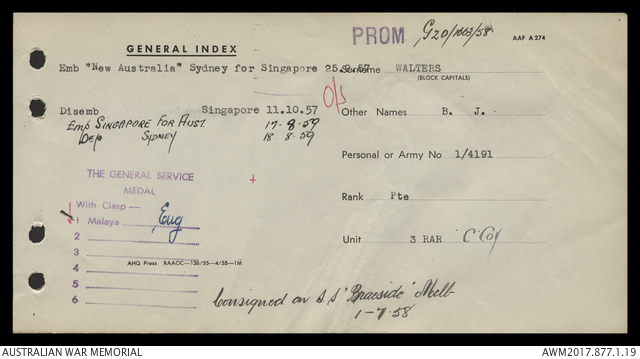 PROM G20/1603/58 AAF A 274
GENERAL INDEX
Emb "New Australia" Sydney for Singapore 25.9.57
Surname WALTERS
(BLOCK CAPITALS)
O/S
Disemb Singapore 11.10.57
Emp SINGAPORE FOR AUST. 17-8.59
Dep SYDNEY 18.8.59
Other Names B. J.
Personal or Army No 1/4191
Rank Pte
Unit 3 RAR C Coy
THE GENERAL SERVICE
MEDAL
With Clasp—
1 Malaya
2
3
AHQ Press RAAOC—136/55—4/55—1M
4
5
6
Consigned on S.S 'Braeside' Melb
1-7-58
AUSTRALIAN WAR MEMORIAL
AWM2017.877.1.19